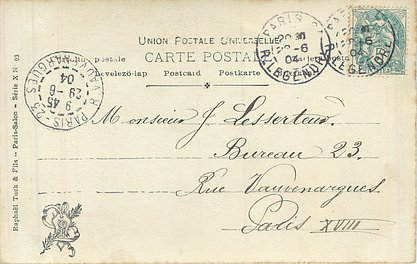 UNION POSTALE UNIVERSELLE
CARTE POSTALE
Levelező-lap Postcard Postkarte
PARIS
6
04
R. LEGENDRE
PARIS
6
04
R. LEGENDRE
PARIS - 23
9 45
29 - 6
04
R. VAUVENARGUES
Monsieur J. Lesserteur
Bureau 23.
Rue Vauvenargues.
Paris XVIII
Raphaël Tuck & Fils -- Paris-Salon -- Série X N° 93